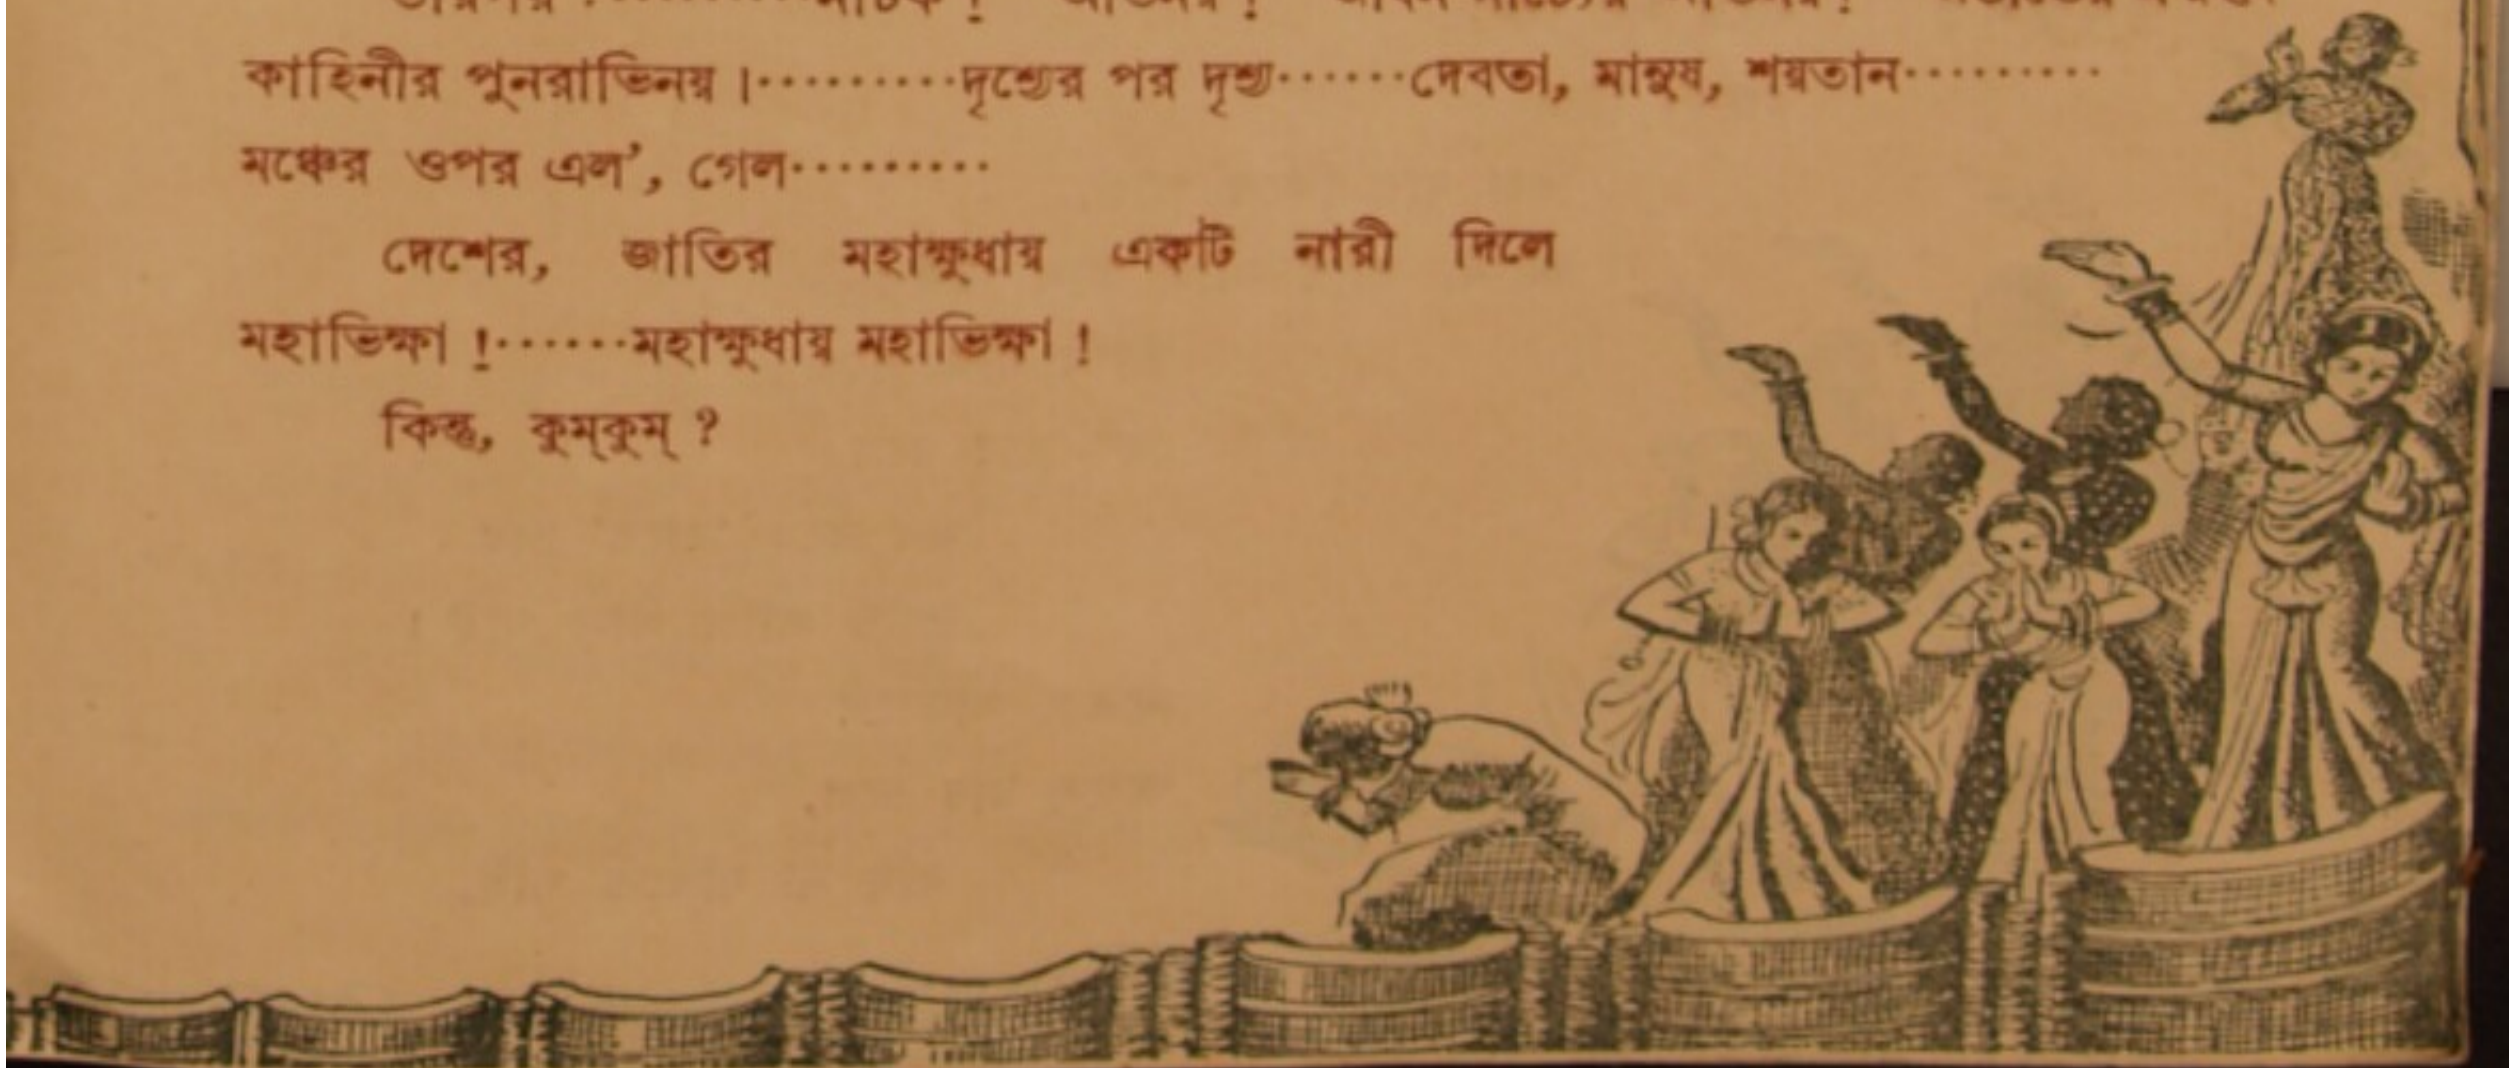 কাহিনীর পুনরাভিনয় ।·········দৃশ্যের পর দৃশ্য······দেবতা, মানুষ, শয়তান·········
মঞ্চের ওপর এল’, গেল·········
দেশের, জাতির মহাক্ষুধায় একটি নারী দিলে
মহাভিক্ষা !······মহাক্ষুধায় মহাভিক্ষা !
কিন্তু, কুম্‌কুম্ ?